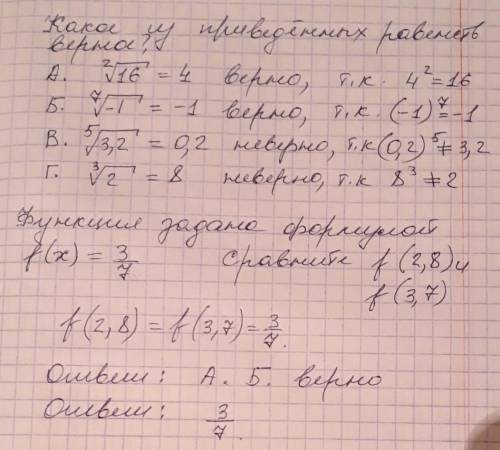 Какое из приведённых равенств
верно?
А. ²√16 = 4 верно, т.к. 4² = 16
Б. ⁷√-1 = -1 верно, т.к. (-1)⁷ = -1
В. ⁵√3,2 = 0,2 неверно, т.к (0,2)⁵ ≠ 3,2
Г. ³√2 = 8 неверно, т.к 8³ ≠ 2
Функция задана формулой
f(x) = 3/7 Сравните f(2,8) и
f(3,7)
f(2,8) = f(3,7) = 3/7.
Ответ: А. Б. верно
Ответ: 3/7.